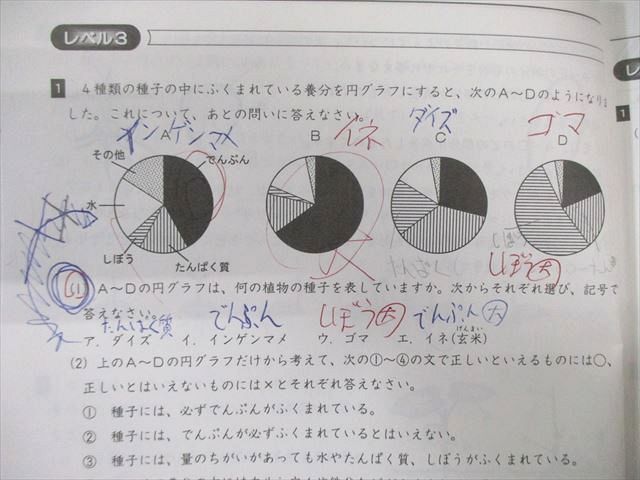 レベル3
1 4種類の種子の中にふくまれている養分を円グラフにすると、次のA～Dのようになりま
した。これについて、あとの問いに答えなさい。
インゲンマメ イネ ダイズ ゴマ
A B C D
その他 でんぷん
水
しぼう たんぱく質
しぼう大
(1) A～Dの円グラフは、何の植物の種子を表していますか。次からそれぞれ選び、記号で
答えなさい。
たんぱく質 でんぷん しぼう大 でんぷん大
ア．ダイズ イ．インゲンマメ ウ．ゴマ エ．イネ(玄米)
げんまい
(2) 上のA～Dの円グラフだけから考えて、次の①～④の文で正しいといえるものには○、
正しいとはいえないものには×とそれぞれ答えなさい。
① 種子には、必ずでんぷんがふくまれている。
② 種子には、でんぷんが必ずふくまれているとはいえない。
③ 種子には、量のちがいがあっても水やたんぱく質、しぼうがふくまれている。
レ
1